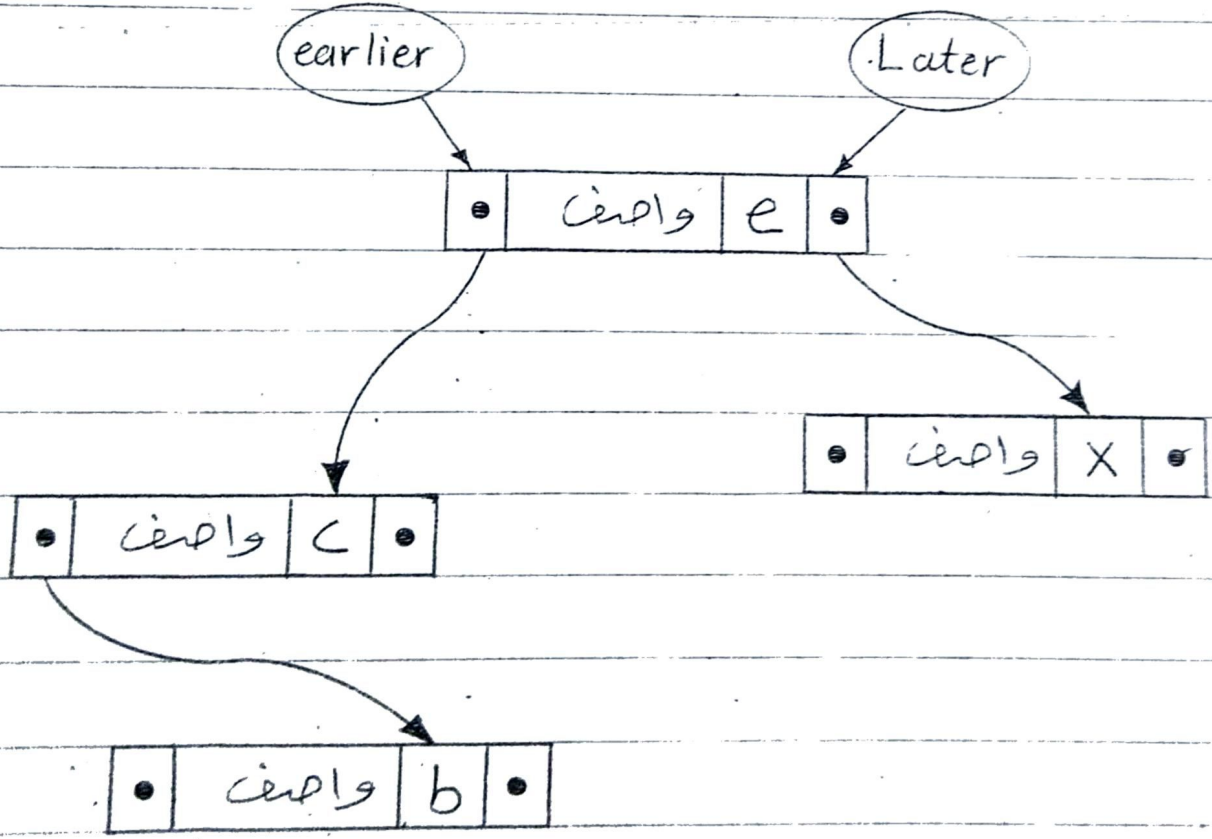 earlier
Later
واصف e
واصف X
واصف c
واصف b